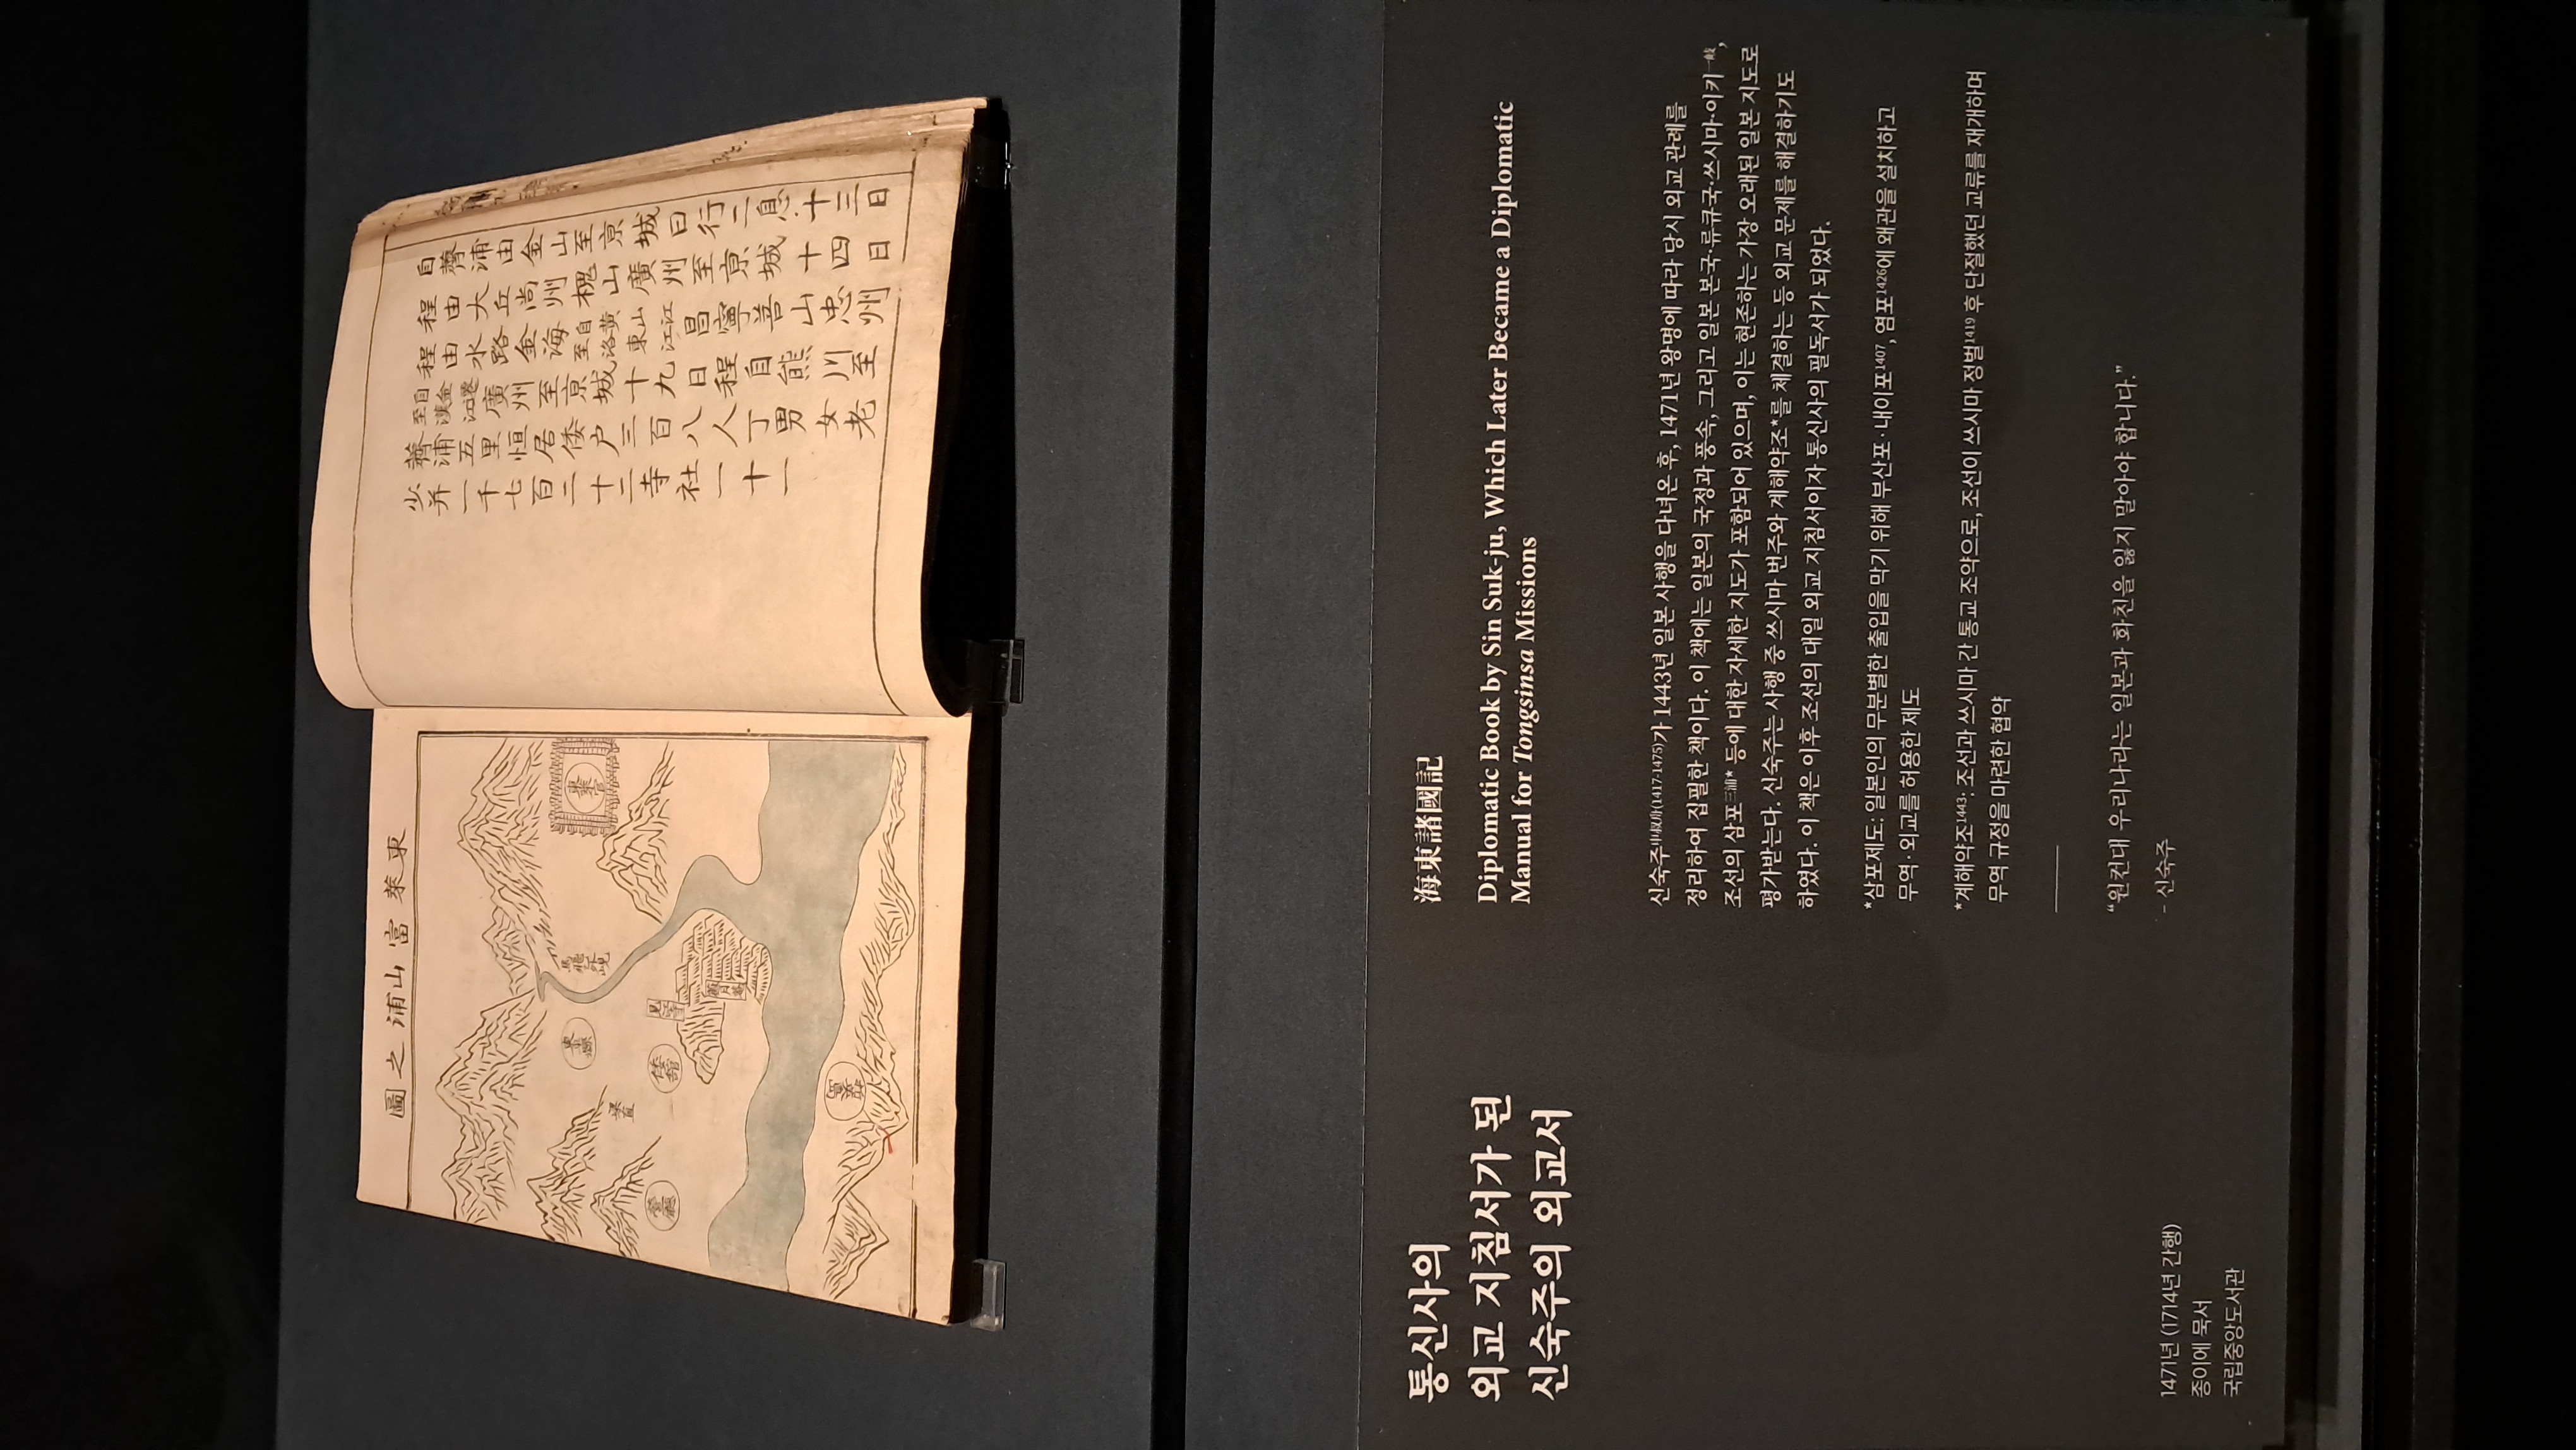 自薺浦由金山至京城日行二息十三日
程由大丘尚州槐山廣州至京城十四日
程由水路金海自黃山江至洛東江昌寧善山忠州
自金遷至漢江廣州至京城十九日程自熊川至
薺浦五里恒居倭戶三百八人丁男女老
少并一千七百二十二寺社一十一
東萊富山浦之圖
東萊官
東平縣
倭館
見江寺
營廳
통신사의
외교 지침서가 된
신숙주의 외교서
海東諸國記
Diplomatic Book by Sin Suk-ju, Which Later Became a Diplomatic
Manual for Tongsinsa Missions
신숙주申叔舟(1417-1475)가 1443년 일본 사행을 다녀온 후, 1471년 왕명에 따라 당시 외교 관례를
정리하여 집필한 책이다. 이 책에는 일본의 국정과 풍속, 그리고 일본 본국·류큐국·쓰시마·이키一岐,
조선의 삼포三浦* 등에 대한 자세한 지도가 포함되어 있으며, 이는 현존하는 가장 오래된 일본 지도로
평가받는다. 신숙주는 사행 중 쓰시마 번주와 계해약조*를 체결하는 등 외교 문제를 해결하기도
하였다. 이 책은 이후 조선의 대일 외교 지침서이자 통신사의 필독서가 되었다.
*삼포제도: 일본인의 무분별한 출입을 막기 위해 부산포·내이포1407, 염포1426에 왜관을 설치하고
무역·외교를 허용한 제도
*계해약조1443: 조선과 쓰시마 간 통교 조약으로, 조선이 쓰시마 정벌1419 후 단절했던 교류를 재개하며
무역 규정을 마련한 협약
“원컨대 우리나라는 일본과 화친을 잃지 말아야 합니다.”
- 신숙주
1471년 (1714년 간행)
종이에 묵서
국립중앙도서관